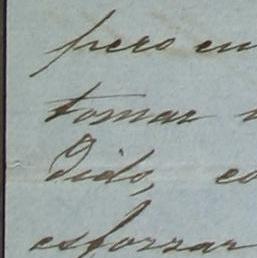 pero en
tomar
dido, es
esforzar